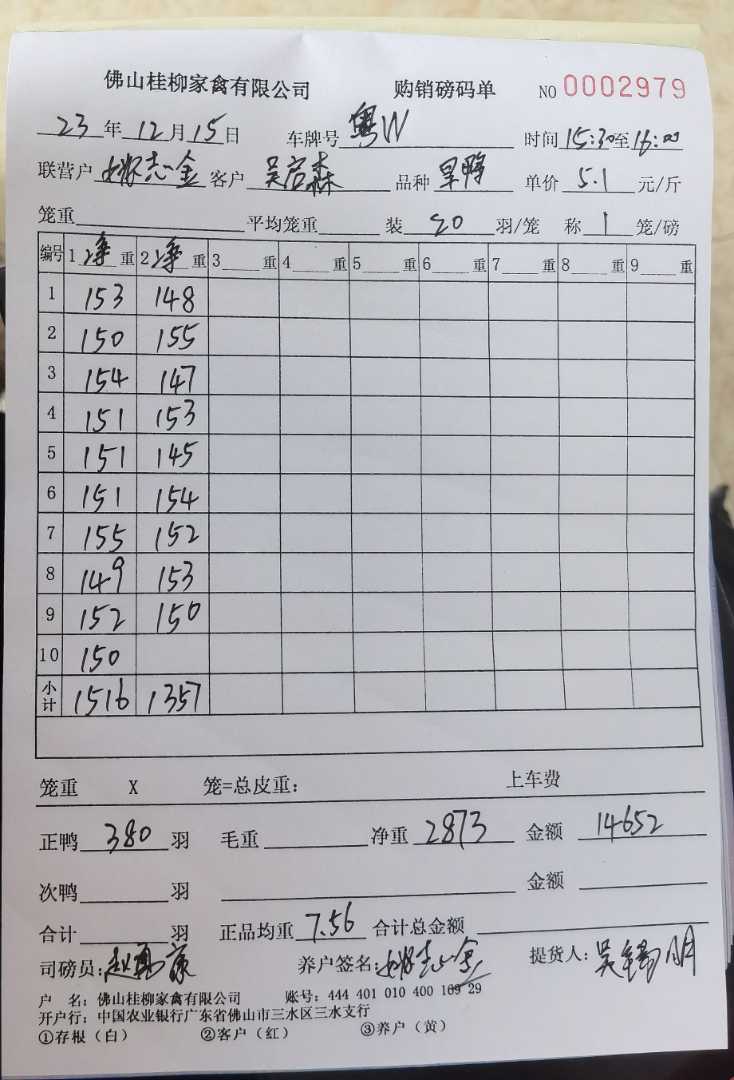 佛山桂柳家禽有限公司 购销磅码单 NO 0002979
23年12月15日 车牌号 粤W 时间 15:30至16:00
联营户 姚志金 客户 吴启森 品种 旱鸭 单价 5.1 元/斤
笼重 平均笼重 装 20 羽/笼 称 1 笼/磅
编号 1 净 重 2 净 重 3 重 4 重 5 重 6 重 7 重 8 重 9 重
1 153 148
2 150 155
3 154 147
4 151 153
5 151 145
6 151 154
7 155 152
8 149 153
9 152 150
10 150
小计 1516 1357
笼重 X 笼=总皮重: 上车费
正鸭 380 羽 毛重 净重 2873 金额 14652
次鸭 羽 金额
合计 羽 正品均重 7.56 合计总金额
司磅员: 养户签名: 姚志金 提货人: 吴 明
户 名: 佛山桂柳家禽有限公司 账号: 444 401 010 400 109 29
开户行: 中国农业银行广东省佛山市三水区三水支行
①存根(白) ②客户(红) ③养户(黄)